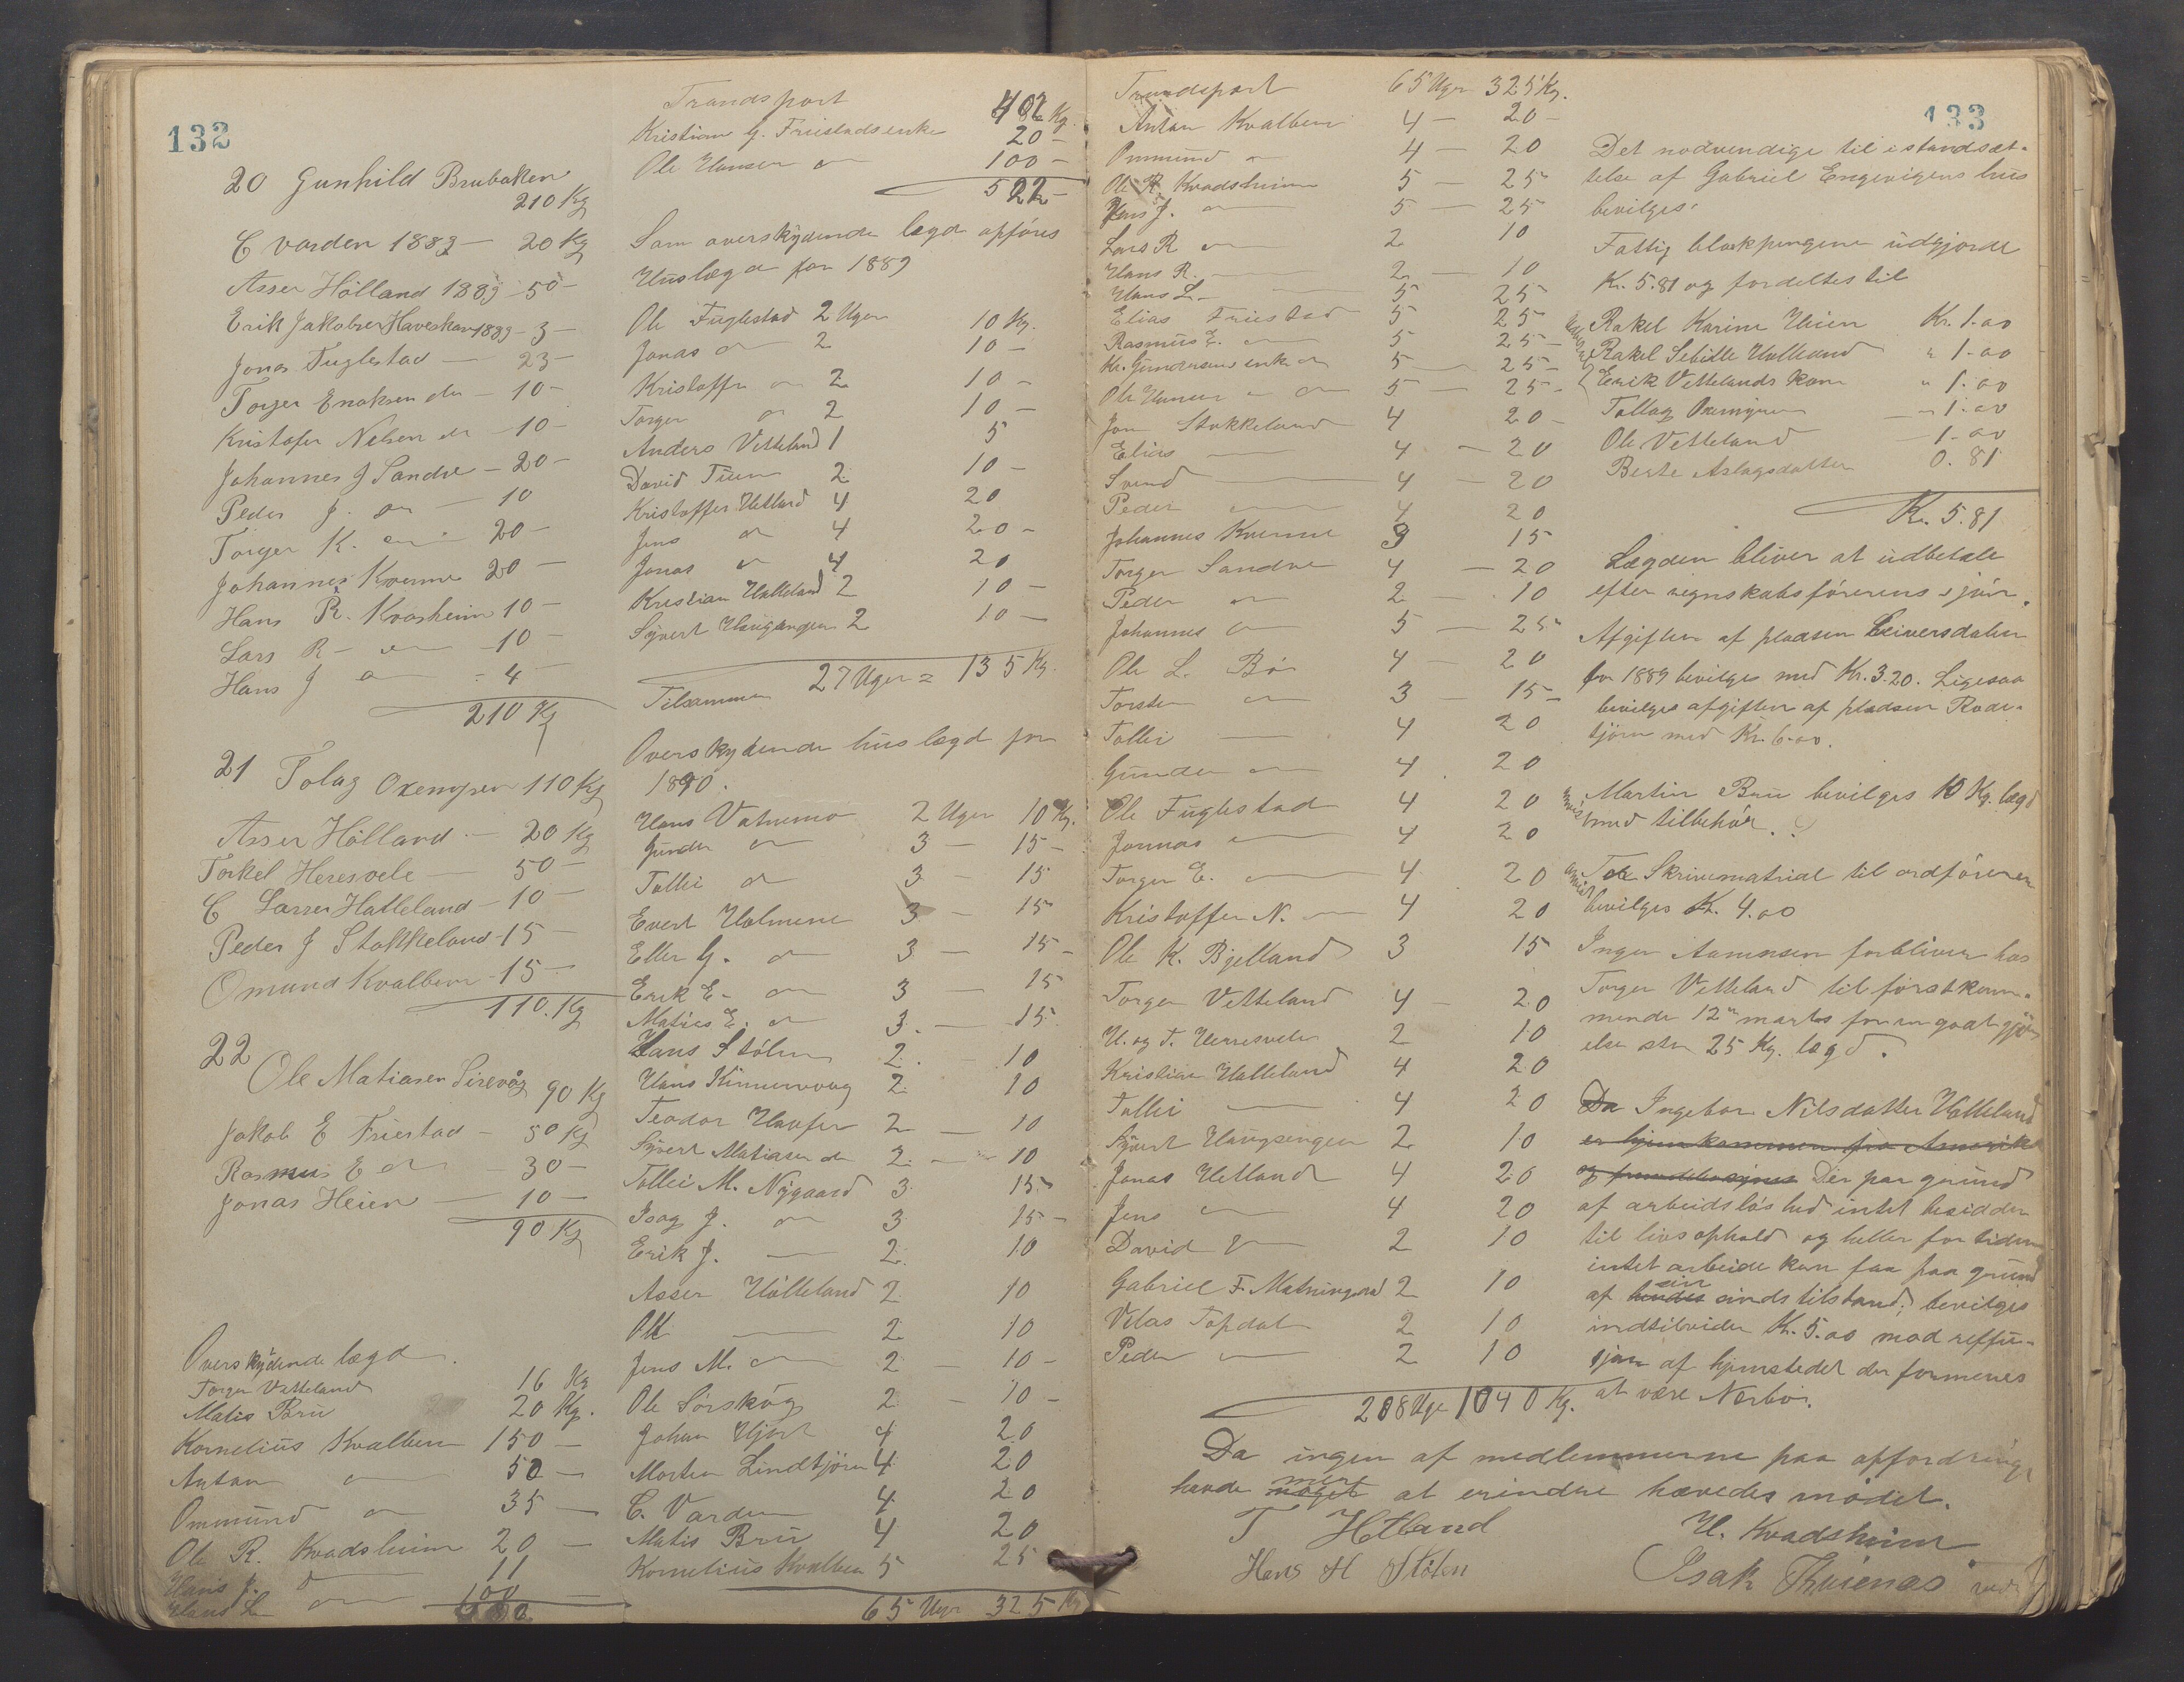 132
20 Gunhild Brubakken
210 Kg
C varden 1889 — 20 Kg
Asser Hölland 1889 - 50 -
Erik Jakobsen Haveskar 1889 - 3 -
Jonas Fuglestad — 23 -
Torger Enoksen do - 10 -
Kristofer Nelsen do - 10 -
Johannes J Sandve - 20 -
Peder J. do - 10
Torger K. do 20 -
Johannes Kvenne 20 -
Hans R. Kvasheim 10 -
Lars R - do - 10 -
Hans J do - 4 -
210 Kg
21 Tolag Oxemyren 110 Kg
Asser Hölland — 20 Kg
Torkel Heresvele — 50 -
C Larsen Hatleland - 10 -
Peder J Stokkeland - 15 -
Omund Kvalbein - 15 -
110. Kg
22
Ole Matiasen Sirevåg 90 Kg
Jakob E Friestad - 50 Kg
Rasmus E do - 30 -
Jonas Heien — 10 -
90 Kg
Overskydende lægd.
Torger Vetteland 16 Kg
Matis Brü 20 Kg.
Kornelius Kvalbein 150 —
Antan do 50 —
Ommund do 35 —
Ole R. Kvadsheim 20 —
Hans J. do 11
Hans L do 100
402
Trandsport 402 Kg.
Kristian G. Friestads enke 20 -
Ole Hansen do 100 -
522 -
Som overskydende lægd opföres
Huslægd for 1889
Ole Fuglestad 2 Uger 10 Kg.
Jonas do 2 10 -
Kristoffer do 2 10 -
Torger do 2 10 -
Anders Vetteland 1 5
David Tuen 2 10 -
Kristoffer Hetland 4 20
Jens do 4 20 -
Jonas do 4 20
Kristian Hatleland 2 10 -
Syvert Haugsengen 2 10 -
Tilsammen 27 Uger = 135 Kg.
Overskydende huslægd for
1890.
Hans Vatnemo 2 Uger 10 Kg.
Gunder do 3 — 15 -
Tollei do 3 15
Evert Holmene 3 - 15
Eller G. do 3 — 15 -
Erik E. do 3 — 15
Matias E. do 3. — 15
Hans Stölen 2. - 10
Hans Kinnervaag 2 10
Teodor Havsen 2 — 10
Syvert Matiasen do 2 — 10
Tollei M. Nygaard 3 15
Isag J. do 3 15 -
Erik J. — 2 10
Asser Hölleland 2 10
Ole — 2 10
Jens M. do 2 - 10 -
Ole Sirskog 2 - 10 -
Johan Hjort 4 20
Morten Lindtjörn 4 20
C. Varden 4 20
Matis Brü 4 20
Kornelius Kvalbein 5 25
65 Uger 325 Kg
Trandsport 65 Uger 325 Kg.
Antan Kvalbein 4 — 20 -
Ommund do 4 — 20
Ole R. Kvadsheim 5 — 25
Hans J. do 5 — 25
Lars R do 2 10
Hans R. — 2 — 10
Hans L. — 5 25
Elias Friestad 5 25
Rasmus E. do 5 25 -
Kr. Gundersens enke do 5 — 25 -
Ole Hansen do 5 — 25 -
Jon Stokkeland 4 20 -
Elias — 4 — 20
Svend — 4 — 20
Peder — 4 20
Johannes Kvenne 3 15
Torger Sandve 4 — 20
Peder do 2 — 10
Johannes do 5 — 25
Ole L. Bö 4 — 20
Torsten do 3 — 15 -
Tollei — 4 20
Gunder do 4 20
Ole Fuglestad 4 20
Jonnas — 4 20
Torger E. — 4 20
Kristoffer N. — 4 20
Ole K. Bjelland 3 15
Torger Vetteland 4 — 20
H. og T. Herresvele 2 10
Kristian Hatleland 4 20
Tollei — 4 20
Syvert Haugsengen 2 10
Jonas Hetland 4 20
Jens — 4 20
David do 2 10
Gabriel F. Matningsdal 2 10
Vilas Topdal 2 10
Peder — 2 10
208 Uger 1040 Kg.
133
Det nodvendige til istandsæt-
telse af Gabriel Engevigens hus
bevilges.
Fattig blokpengene udgjorde
Kr. 5.81 og fordeltes til
Rakel Karine Heien Kr. 1.00
Rakel Sebille Hatleland " 1.00
Erik Vettelands kone " 1.00
Tollag Oxemyren — 1.00
Ole Vetteland — 1.00
Berte Aslagsdatter 0.81
Kr. 5.81
Lægden bliver at udbetale
efter regnskabsförerens skjön.
Afgiften af pladsen Leiversdalen
for 1889 bevilges med Kr. 3.20. Ligesaa
bevilges afgiften af pladsen Rode-
tjörn med Kr. 6.00.
Martin Brü bevilges 10 Kg. lægd
anvist med tilbehör.
anvist Til Skrivematrial til ordföreren
bevilges Kr. 4.00
Inger Aamensen forbliver hos
Torger Vetteland til förstkom-
mende 12te marts for en godtgjör-
else stor 25 Kg. lægd.
Da Ingebor Nilsdatter Hatleland
er hjemkommen fra Amerika
og fremdeles synes Der paa grund
af arbeidslöshed intet besidder
til livsophold og heller for tiden
intet arbeide kan faa paa grund
af hendes sin sindstilstand, bevilges
indtilvider Kr. 5.00 mod reffu-
sjon af hjemstedet der formenes
at være Nærbö.
Da ingen af medlemmerne paa opfordring
havde noget mere at erindre hævedes mödet.
T Hetland H. Kvadsheim
Hans H Stölen Isak Thuenæs